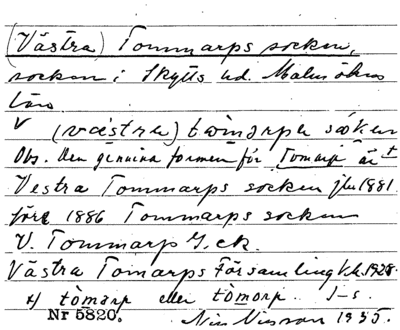 (Västra) Tommarps socken,
socken i Skytts hd. Malmöhus
län
v (västra) tomarps
Obs. Den genuina formen för Tomarp är +)
Vestra Tommarps socken jb 1881.
före 1886 Tommarps socken
V. Tommarp G.ek.
Västra Tomarps Församling kk. 1928.
+) tomarp eller tomarp. J-s.
Nr 5820. Nils Nilsson 1935.